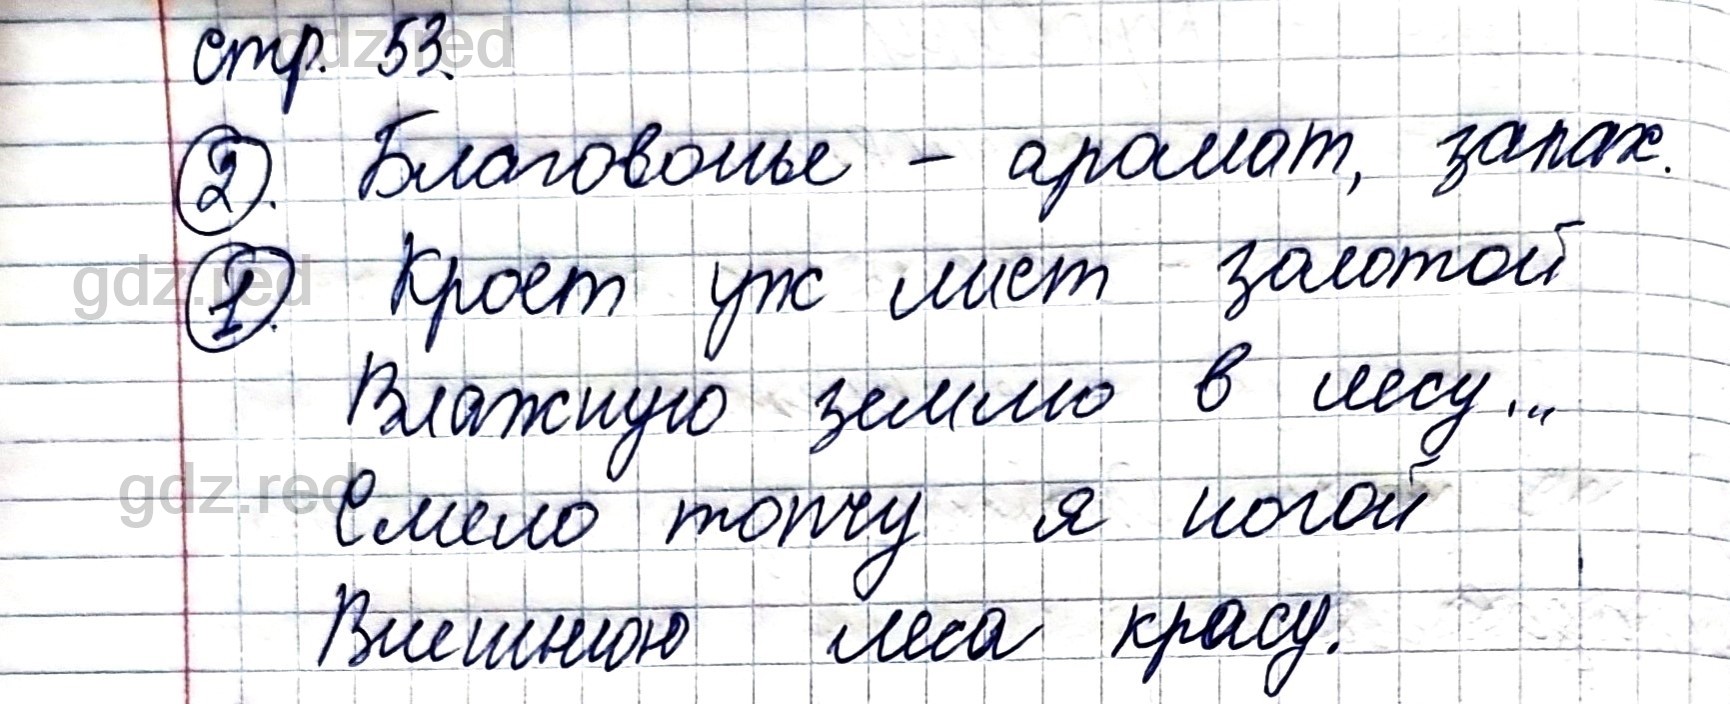 стр. 53.
gdz.red
2. Благовонье – аромат, запах.
1. Кроет уж лист золотой
gdz.red
Влажную землю в лесу...
gdz.red
Смело топчу я ногой
Внешнюю леса красу.